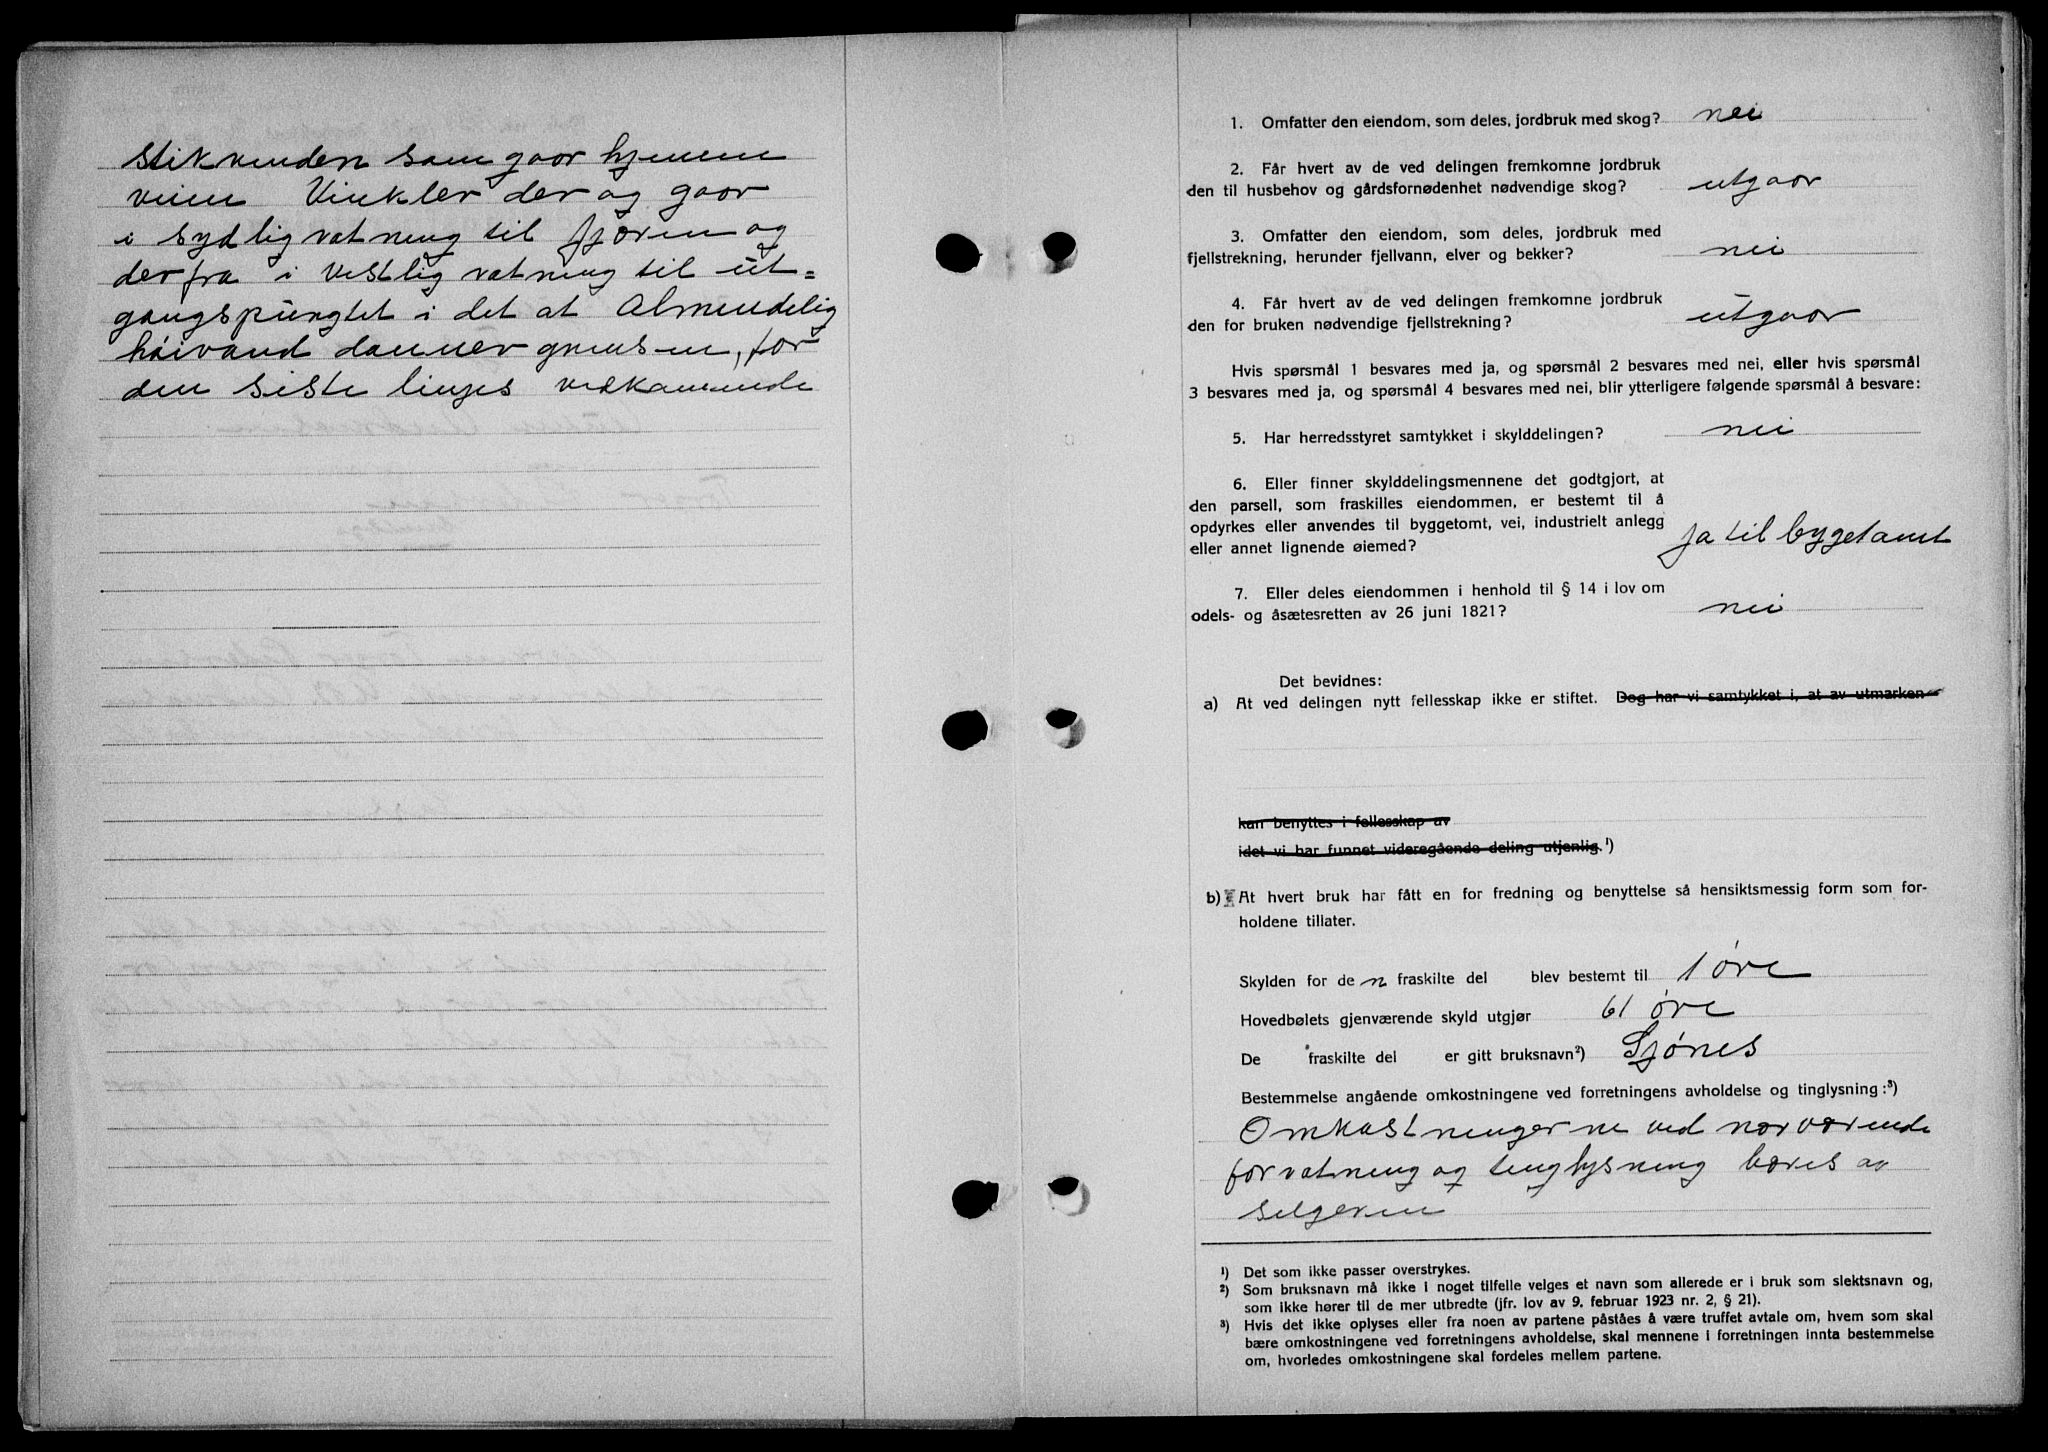 stikrenden som gaar hjenem
veien Vinkler der og gaar
i sydlig retning til fjæren og
derfra i vestlig retning til ut=
gangspungtet i det at Almindelig
høivand danner grensen, for
den siste linjes vedkommende
1. Omfatter den eiendom, som deles, jordbruk med skog? nei
2. Får hvert av de ved delingen fremkomne jordbruk
den til husbehov og gårdsfornødenhet nødvendige skog? utgaar
3. Omfatter den eiendom, som deles, jordbruk med
fjellstrekning, herunder fjellvann, elver og bekker? nei
4. Får hvert av de ved delingen fremkomne jordbruk
den for bruken nødvendige fjellstrekning? utgaar
Hvis spørsmål 1 besvares med ja, og spørsmål 2 besvares med nei, eller hvis spørsmål
3 besvares med ja, og spørsmål 4 besvares med nei, blir ytterligere følgende spørsmål å besvare:
5. Har herredsstyret samtykket i skylddelingen? nei
6. Eller finner skylddelingsmennene det godtgjort, at
den parsell, som fraskilles eiendommen, er bestemt til å
opdyrkes eller anvendes til byggetomt, vei, industrielt anlegg
eller annet lignende øiemed? ja til bygetomt
7. Eller deles eiendommen i henhold til § 14 i lov om
odels- og åsætesretten av 26 juni 1821? nei
Det bevidnes:
a) At ved delingen nytt fellesskap ikke er stiftet. Dog har vi samtykket i, at av utmarken
kan benyttes i fellesskap av
idet vi har funnet videregående deling utjenlig. ¹)
b) At hvert bruk har fått en for fredning og benyttelse så hensiktsmessig form som for-
holdene tillater.
Skylden for de n fraskilte del blev bestemt til 1 øre
Hovedbølets gjenværende skyld utgjør 61 øre
De fraskilte del er gitt bruksnavn²) Sjønes
Bestemmelse angående omkostningene ved forretningens avholdelse og tinglysning:³)
Omkostningerne ved nærværende
forretning og tinglysning bæres av
selgeren
¹) Det som ikke passer overstrykes.
²) Som bruksnavn må ikke i noget tilfelle velges et navn som allerede er i bruk som slektsnavn og,
som ikke hører til de mer utbredte (jfr. lov av 9. februar 1923 nr. 2, § 21).
³) Hvis det ikke oplyses eller fra noen av partene påståes å være truffet avtale om, hvem som skal
bære omkostningene ved forretningens avholdelse, skal mennene i forretningen innta bestemmelse
om, hvorledes omkostningene skal fordeles mellem partene.